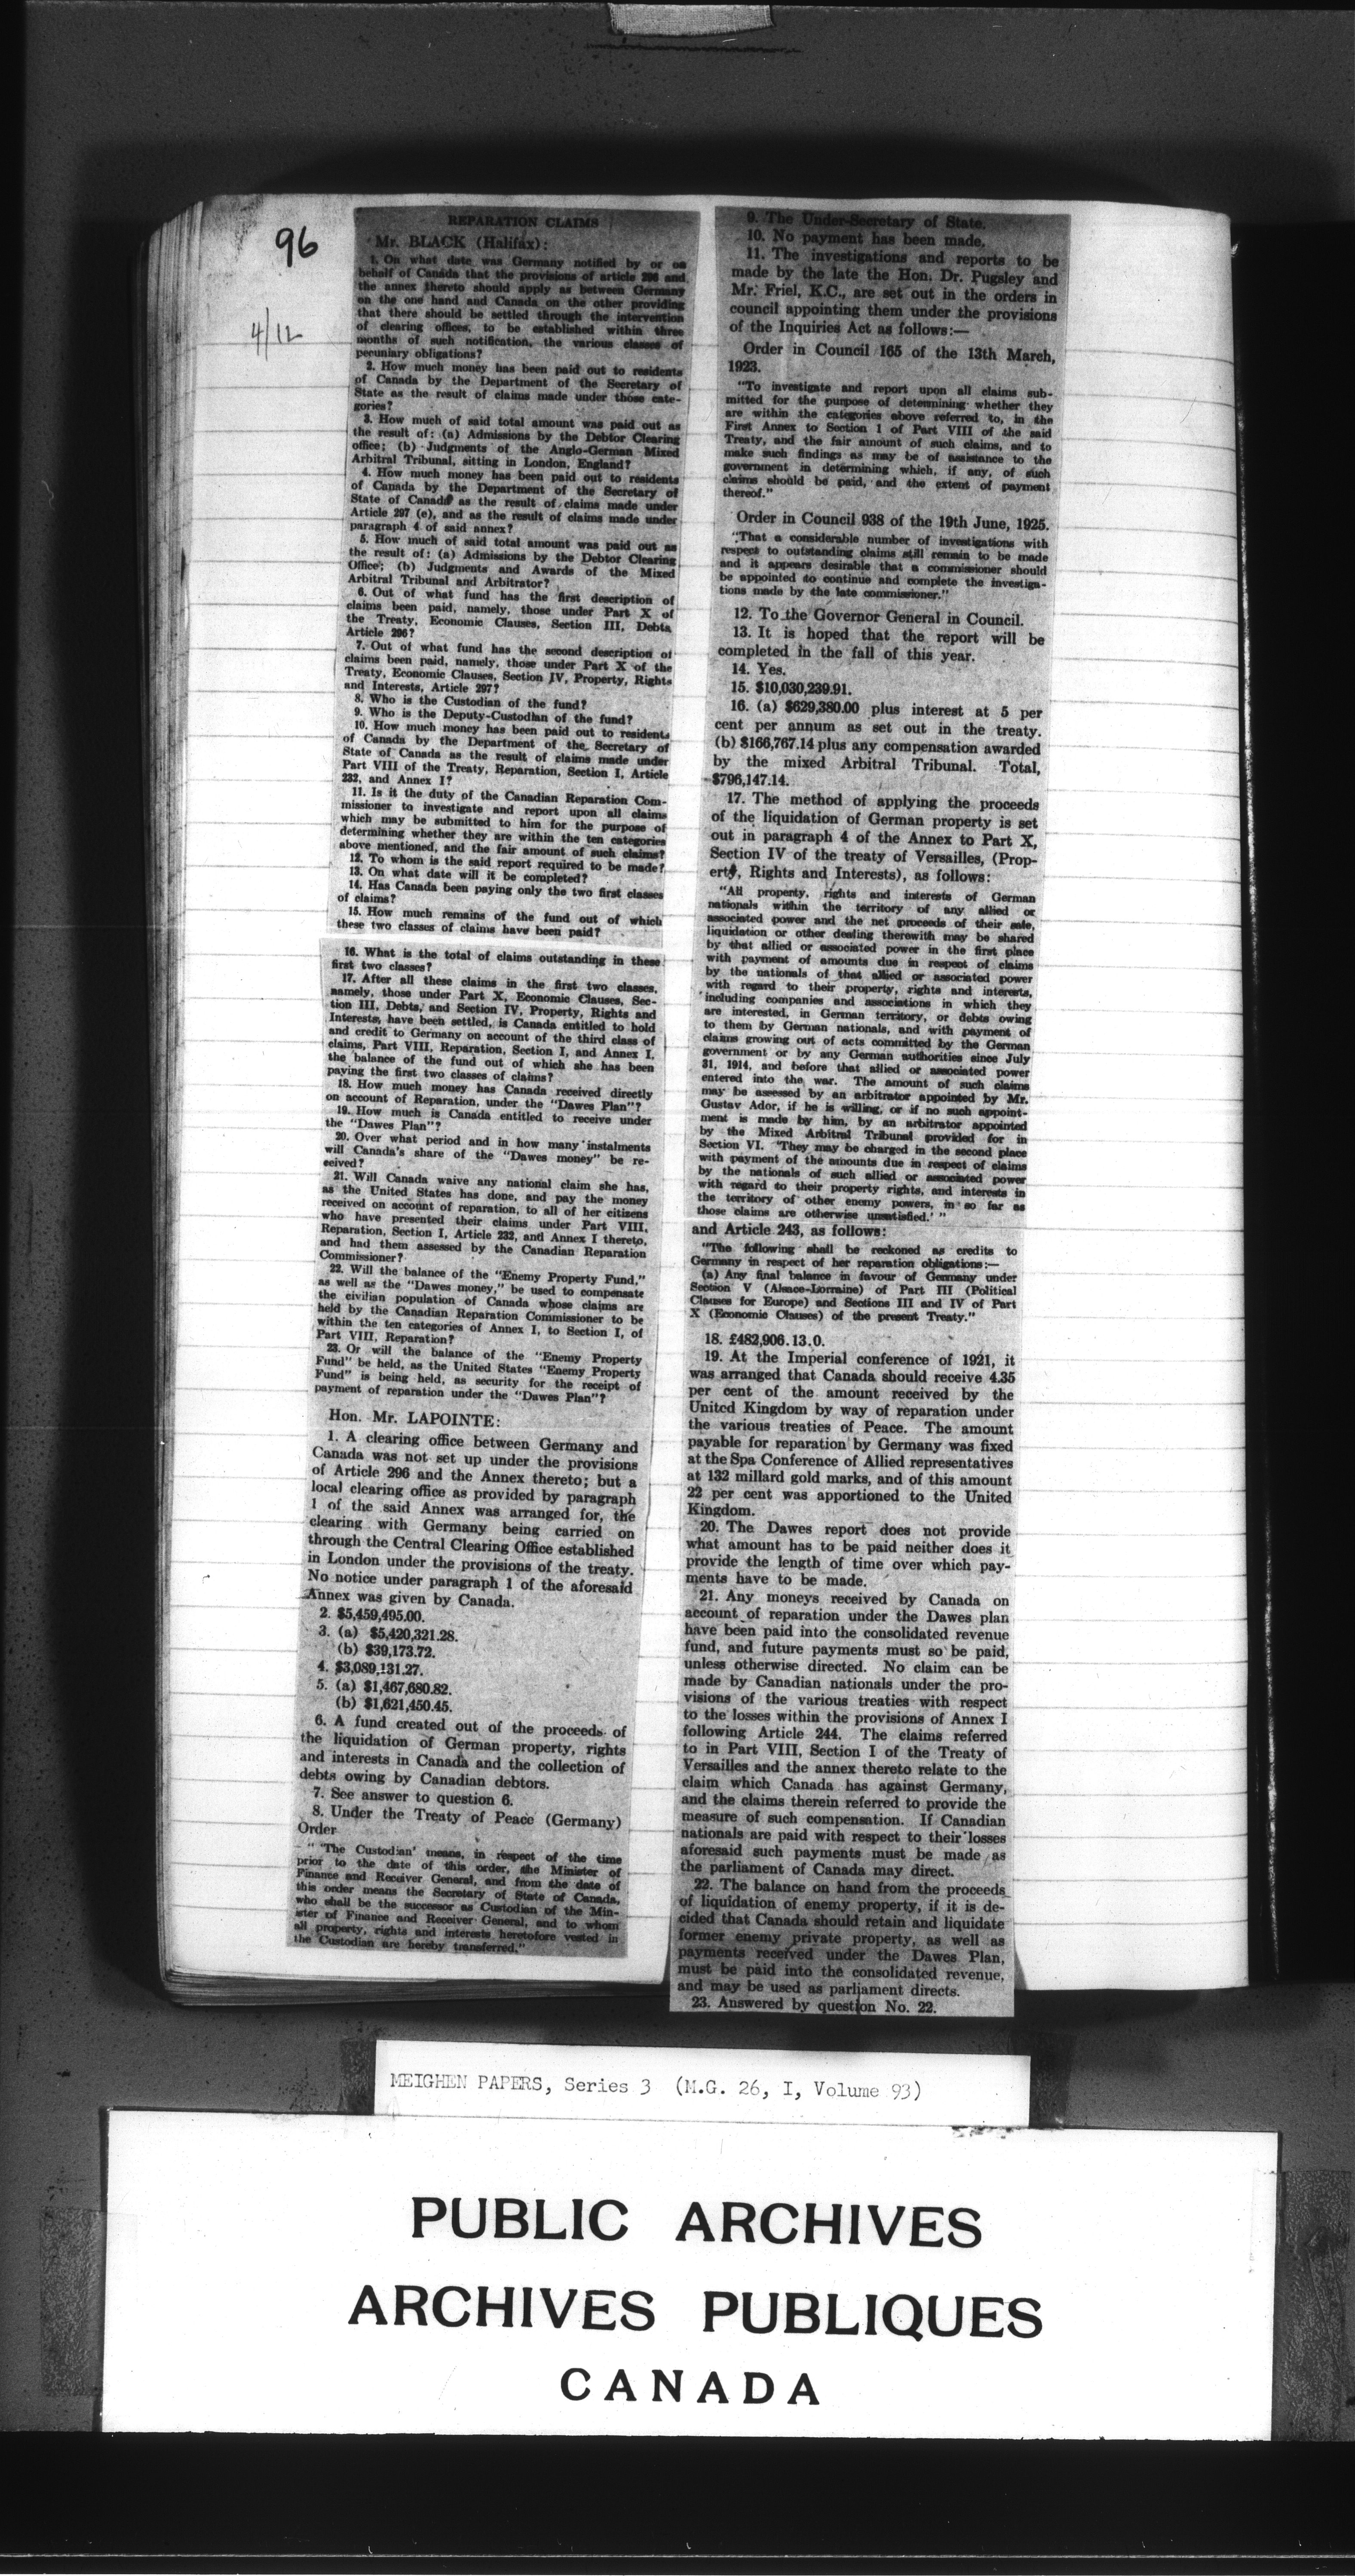 96
4/12
REPARATION CLAIMS
Mr. BLACK (Halifax):
1. On what date was Germany notified by or on
behalf of Canada that the provisions of article 296 and
the annex thereto should apply as between Germany
on the one hand and Canada on the other providing
that there should be settled through the intervention
of clearing offices, to be established within three
months of such notification, the various classes of
pecuniary obligations?
2. How much money has been paid out to residents
of Canada by the Department of the Secretary of
State as the result of claims made under those cate-
gories?
3. How much of said total amount was paid out as
the result of: (a) Admissions by the Debtor Clearing
office; (b) Judgments of the Anglo-German Mixed
Arbitral Tribunal, sitting in London, England?
4. How much money has been paid out to residents
of Canada by the Department of the Secretary of
State of Canada as the result of claims made under
Article 297 (e), and as the result of claims made under
paragraph 4 of said annex?
5. How much of said total amount was paid out as
the result of: (a) Admissions by the Debtor Clearing
Office; (b) Judgments and Awards of the Mixed
Arbitral Tribunal and Arbitrator?
6. Out of what fund has the first description of
claims been paid, namely, those under Part X of
the Treaty, Economic Clauses, Section III, Debts,
Article 296?
7. Out of what fund has the second description of
claims been paid, namely, those under Part X of the
Treaty, Economic Clauses, Section IV, Property, Rights
and Interests, Article 297?
8. Who is the Custodian of the fund?
9. Who is the Deputy-Custodian of the fund?
10. How much money has been paid out to residents
of Canada by the Department of the Secretary of
State of Canada as the result of claims made under
Part VIII of the Treaty, Reparation, Section I, Article
232, and Annex I?
11. Is it the duty of the Canadian Reparation Com-
missioner to investigate and report upon all claims
which may be submitted to him for the purpose of
determining whether they are within the ten categories
above mentioned, and the fair amount of such claims?
12. To whom is the said report required to be made?
13. On what date will it be completed?
14. Has Canada been paying only the two first classes
of claims?
15. How much remains of the fund out of which
these two classes of claims have been paid?
16. What is the total of claims outstanding in these
first two classes?
17. After all these claims in the first two classes,
namely, those under Part X, Economic Clauses, Sec-
tion III, Debts, and Section IV, Property, Rights and
Interests, have been settled, is Canada entitled to hold
and credit to Germany on account of the third class of
claims, Part VIII, Reparation, Section I, and Annex I,
the balance of the fund out of which she has been
paying the first two classes of claims?
18. How much money has Canada received directly
on account of Reparation, under the "Dawes Plan"?
19. How much is Canada entitled to receive under
the "Dawes Plan"?
20. Over what period and in how many instalments
will Canada's share of the "Dawes money" be re-
ceived?
21. Will Canada waive any national claim she has,
as the United States has done, and pay the money
received on account of reparation, to all of her citizens
who have presented their claims under Part VIII,
Reparation, Section I, Article 232, and Annex I thereto,
and had them assessed by the Canadian Reparation
Commissioner?
22. Will the balance of the "Enemy Property Fund,"
as well as the "Dawes money," be used to compensate
the civilian population of Canada whose claims are
held by the Canadian Reparation Commissioner to be
within the ten categories of Annex I, to Section I, of
Part VIII, Reparation?
23. Or will the balance of the "Enemy Property
Fund" be held, as the United States "Enemy Property
Fund" is being held, as security for the receipt of
payment of reparation under the "Dawes Plan"?
Hon. Mr. LAPOINTE:
1. A clearing office between Germany and
Canada was not set up under the provisions
of Article 296 and the Annex thereto; but a
local clearing office as provided by paragraph
1 of the said Annex was arranged for, the
clearing with Germany being carried on
through the Central Clearing Office established
in London under the provisions of the treaty.
No notice under paragraph 1 of the aforesaid
Annex was given by Canada.
2. $5,459,495.00.
3. (a) $5,420,321.28.
(b) $39,173.72.
4. $3,089,131.27.
5. (a) $1,467,680.82.
(b) $1,621,450.45.
6. A fund created out of the proceeds of
the liquidation of German property, rights
and interests in Canada and the collection of
debts owing by Canadian debtors.
7. See answer to question 6.
8. Under the Treaty of Peace (Germany)
Order
" 'The Custodian' means, in respect of the time
prior to the date of this order, the Minister of
Finance and Receiver General, and from the date of
this order means the Secretary of State of Canada,
who shall be the successor as Custodian of the Min-
ister of Finance and Receiver General, and to whom
all property, rights and interests heretofore vested in
the Custodian are hereby transferred."
9. The Under-Secretary of State.
10. No payment has been made.
11. The investigations and reports to be
made by the late the Hon. Dr. Pugsley and
Mr. Friel, K.C., are set out in the orders in
council appointing them under the provisions
of the Inquiries Act as follows:—
Order in Council 165 of the 13th March,
1923.
"To investigate and report upon all claims sub-
mitted for the purpose of determining whether they
are within the categories above referred to, in the
First Annex to Section 1 of Part VIII of the said
Treaty, and the fair amount of such claims, and to
make such findings as may be of assistance to the
government in determining which, if any, of such
claims should be paid, and the extent of payment
thereof."
Order in Council 938 of the 19th June, 1925.
"That a considerable number of investigations with
respect to outstanding claims still remain to be made
and it appears desirable that a commissioner should
be appointed to continue and complete the investiga-
tions made by the late commissioner."
12. To the Governor General in Council.
13. It is hoped that the report will be
completed in the fall of this year.
14. Yes.
15. $10,030,239.91.
16. (a) $629,380.00 plus interest at 5 per
cent per annum as set out in the treaty.
(b) $166,767.14 plus any compensation awarded
by the mixed Arbitral Tribunal. Total,
$796,147.14.
17. The method of applying the proceeds
of the liquidation of German property is set
out in paragraph 4 of the Annex to Part X,
Section IV of the treaty of Versailles, (Prop-
erty, Rights and Interests), as follows:
"All property, rights and interests of German
nationals within the territory of any allied or
associated power and the net proceeds of their sale,
liquidation or other dealing therewith may be shared
by that allied or associated power in the first place
with payment of amounts due in respect of claims
by the nationals of that allied or associated power
with regard to their property, rights and interests,
including companies and associations in which they
are interested, in German territory, or debts owing
to them by German nationals, and with payment of
claims growing out of acts committed by the German
government or by any German authorities since July
31, 1914, and before that allied or associated power
entered into the war. The amount of such claims
may be assessed by an arbitrator appointed by Mr.
Gustav Ador, if he is willing, or if no such appoint-
ment is made by him, by an arbitrator appointed
by the Mixed Arbitral Tribunal provided for in
Section VI. 'They may be charged in the second place
with payment of the amounts due in respect of claims
by the nationals of such allied or associated power
with regard to their property rights, and interests in
the territory of other enemy powers, in so far as
those claims are otherwise unsatisfied.' "
and Article 243, as follows:
"The following shall be reckoned as credits to
Germany in respect of her reparation obligations:—
(a) Any final balance in favour of Germany under
Section V (Alsace-Lorraine) of Part III (Political
Clauses for Europe) and Sections III and IV of Part
X (Economic Clauses) of the present Treaty."
18. £482,906.13.0.
19. At the Imperial conference of 1921, it
was arranged that Canada should receive 4.35
per cent of the amount received by the
United Kingdom by way of reparation under
the various treaties of Peace. The amount
payable for reparation by Germany was fixed
at the Spa Conference of Allied representatives
at 132 millard gold marks, and of this amount
22 per cent was apportioned to the United
Kingdom.
20. The Dawes report does not provide
what amount has to be paid neither does it
provide the length of time over which pay-
ments have to be made.
21. Any moneys received by Canada on
account of reparation under the Dawes plan
have been paid into the consolidated revenue
fund, and future payments must so be paid,
unless otherwise directed. No claim can be
made by Canadian nationals under the pro-
visions of the various treaties with respect
to the losses within the provisions of Annex I
following Article 244. The claims referred
to in Part VIII, Section I of the Treaty of
Versailles and the annex thereto relate to the
claim which Canada has against Germany,
and the claims therein referred to provide the
measure of such compensation. If Canadian
nationals are paid with respect to their losses
aforesaid such payments must be made as
the parliament of Canada may direct.
22. The balance on hand from the proceeds
of liquidation of enemy property, if it is de-
cided that Canada should retain and liquidate
former enemy private property, as well as
payments received under the Dawes Plan,
must be paid into the consolidated revenue,
and may be used as parliament directs.
23. Answered by question No. 22.
MEIGHEN PAPERS, Series 3 (M.G. 26, I, Volume 93)
PUBLIC ARCHIVES
ARCHIVES PUBLIQUES
CANADA